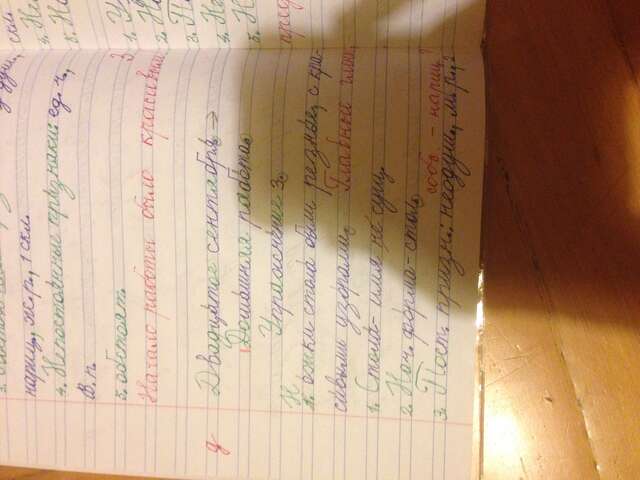 душ.,
нариц., ж.р., 1 скл.
4. Непостоянные признаки: ед. ч.,
В.п.
5. обстоят.
3
Начало работы было красивым
д
Двадцатое сентября. →
Домашняя работа.
Упражнение 3.
Н
Ножки стола были резные, с кра-
сивыми узорами. Главные
1. Стола - имя не сущ.
2. Нач. форма - стол.
собс. - нариц.?
3. Пост. призн.: неодуш., м.р., 2
скл.
4. Не
5. На
1. У
2. На
3. По
4. Не
5. Н
пред